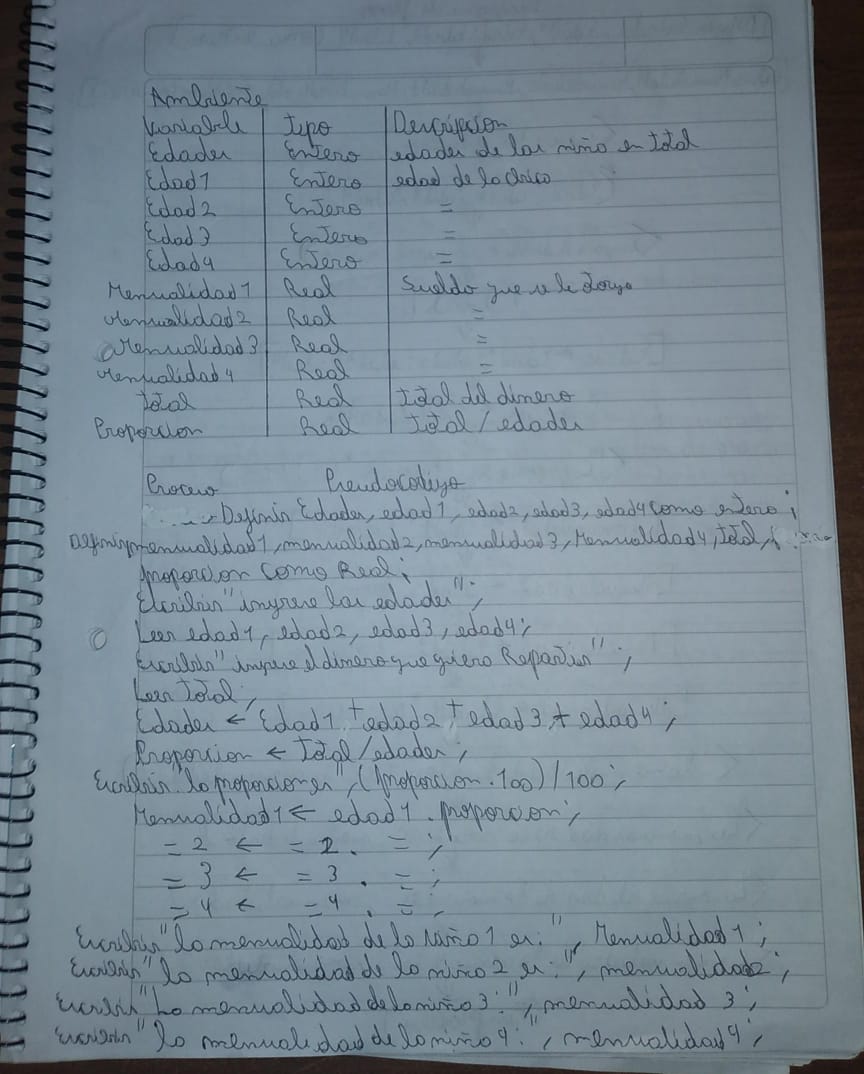 Ambiente
Variable Tipo Descripcion
Edades Entero edades de las niño en total
Edad1 Entero edad de la chica
Edad2 Entero =
Edad3 Entero =
Edad4 Entero =
Mensualidad1 Real Sueldo que se le
mensualidad2 Real =
Mensualidad3 Real =
Mensualidad4 Real =
total Real total del dinero
Proporcion Real total / edades
Proceso Pseudocodigo
Definir Edades, edad1, edad2, edad3, edad4 como entero;
Definir mensualidad1, mensualidad2, mensualidad3, Mensualidad4, total,
proporcion Como Real;
Escribir "ingrese las edades";
Leer edad1, edad2, edad3, edad4;
Escribir "ingrese el dinero que quiero Repartir";
Leer total;
Edades ← Edad1 + edad2 + edad3 + edad4;
Proporcion ← total/edades;
Escribir "la proporcion es", (proporcion.100)/100;
Mensualidad1 ← edad1 . proporcion;
= 2 ← = 2 . = ;
= 3 ← = 3 . = ;
= 4 ← = 4 . = ;
Escribir "la mensualidad de la niña 1 es:", Mensualidad1;
Escribir "la mensualidad de la niña 2 es:", mensualidad2;
Escribir "La mensualidad de la niña 3:", mensualidad 3;
Escribir "la mensualidad de la niña 4:", mensualidad4;